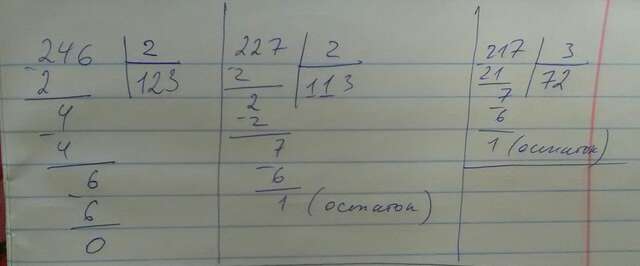 -246 | 2
2 | 123
4
-
4
6
-
6
0
-227 | 2
2 | 113
2
-2
7
-6
1 (остаток)
-217 | 3
21 | 72
7
-6
1 (остаток)